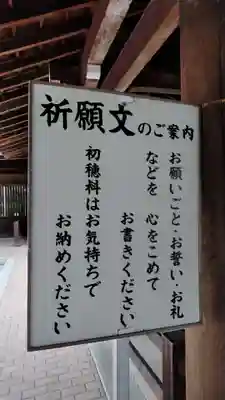 祈願文のご案内
お願いごと・お誓い・お礼
などを 心をこめて
お書きください
初穂料はお気持ちで
お納めください